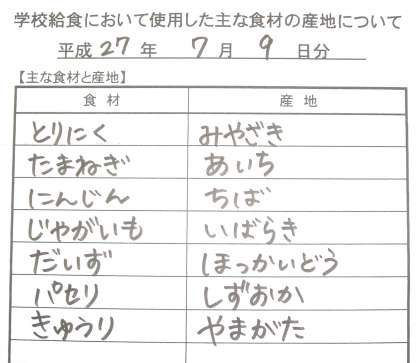 学校給食において使用した主な食材の産地について
平成 27 年 7 月 9 日分
【主な食材と産地】
食材 産地
とりにく みやざき
たまねぎ あいち
にんじん ちば
じゃがいも いばらき
だいず ほっかいどう
パセリ しずおか
きゅうり やまがた